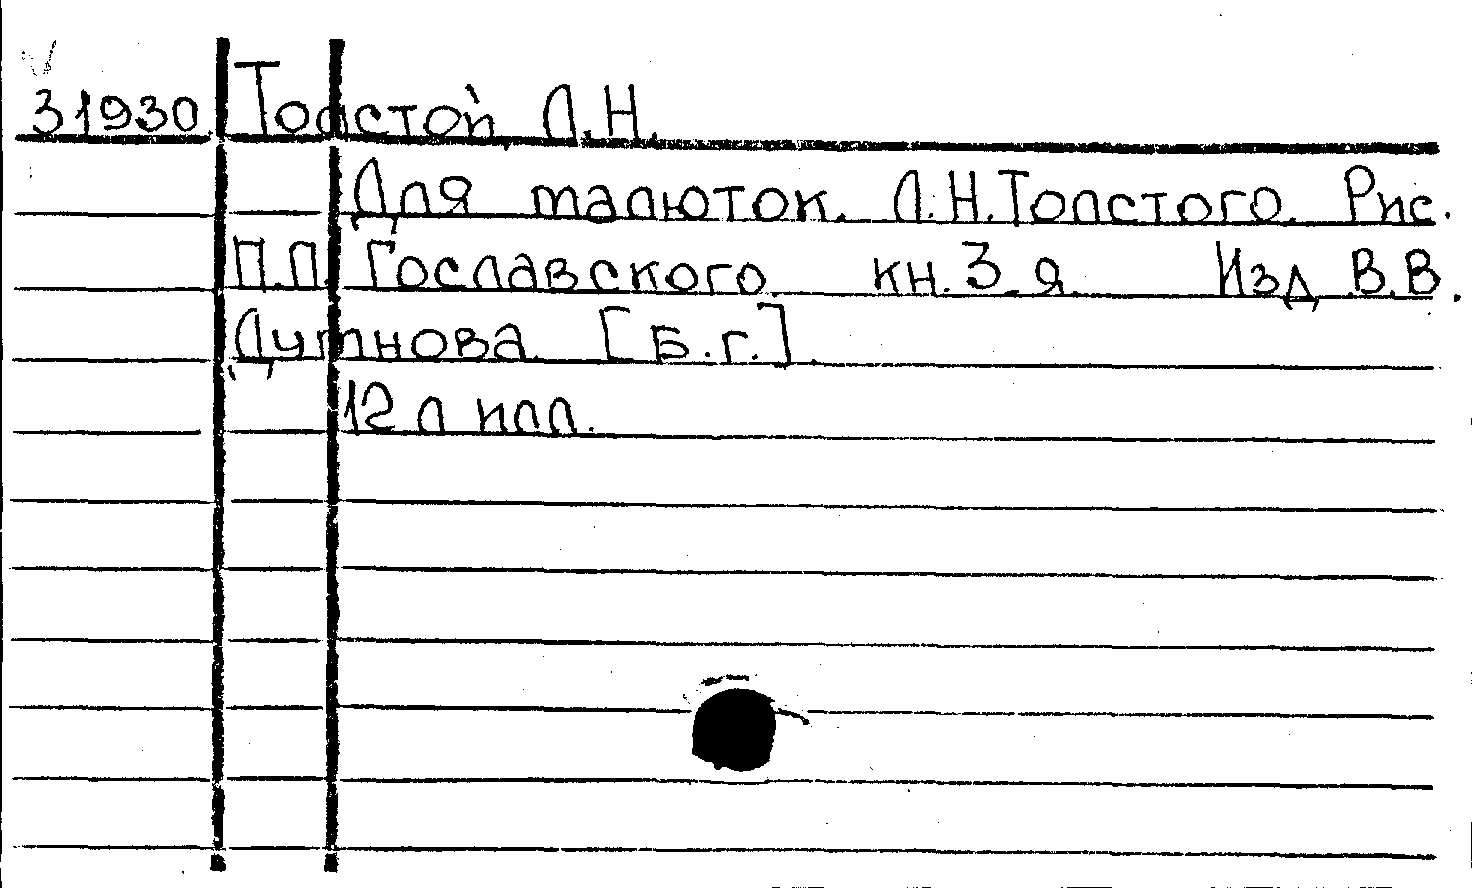 31930 Толстой Л.Н.
Для малюток. Л.Н.Толстого. Рис.
П.П. Гославского. кн. 3-я. Изд. В.В.
Думнова. [Б.г.].
12 л илл.